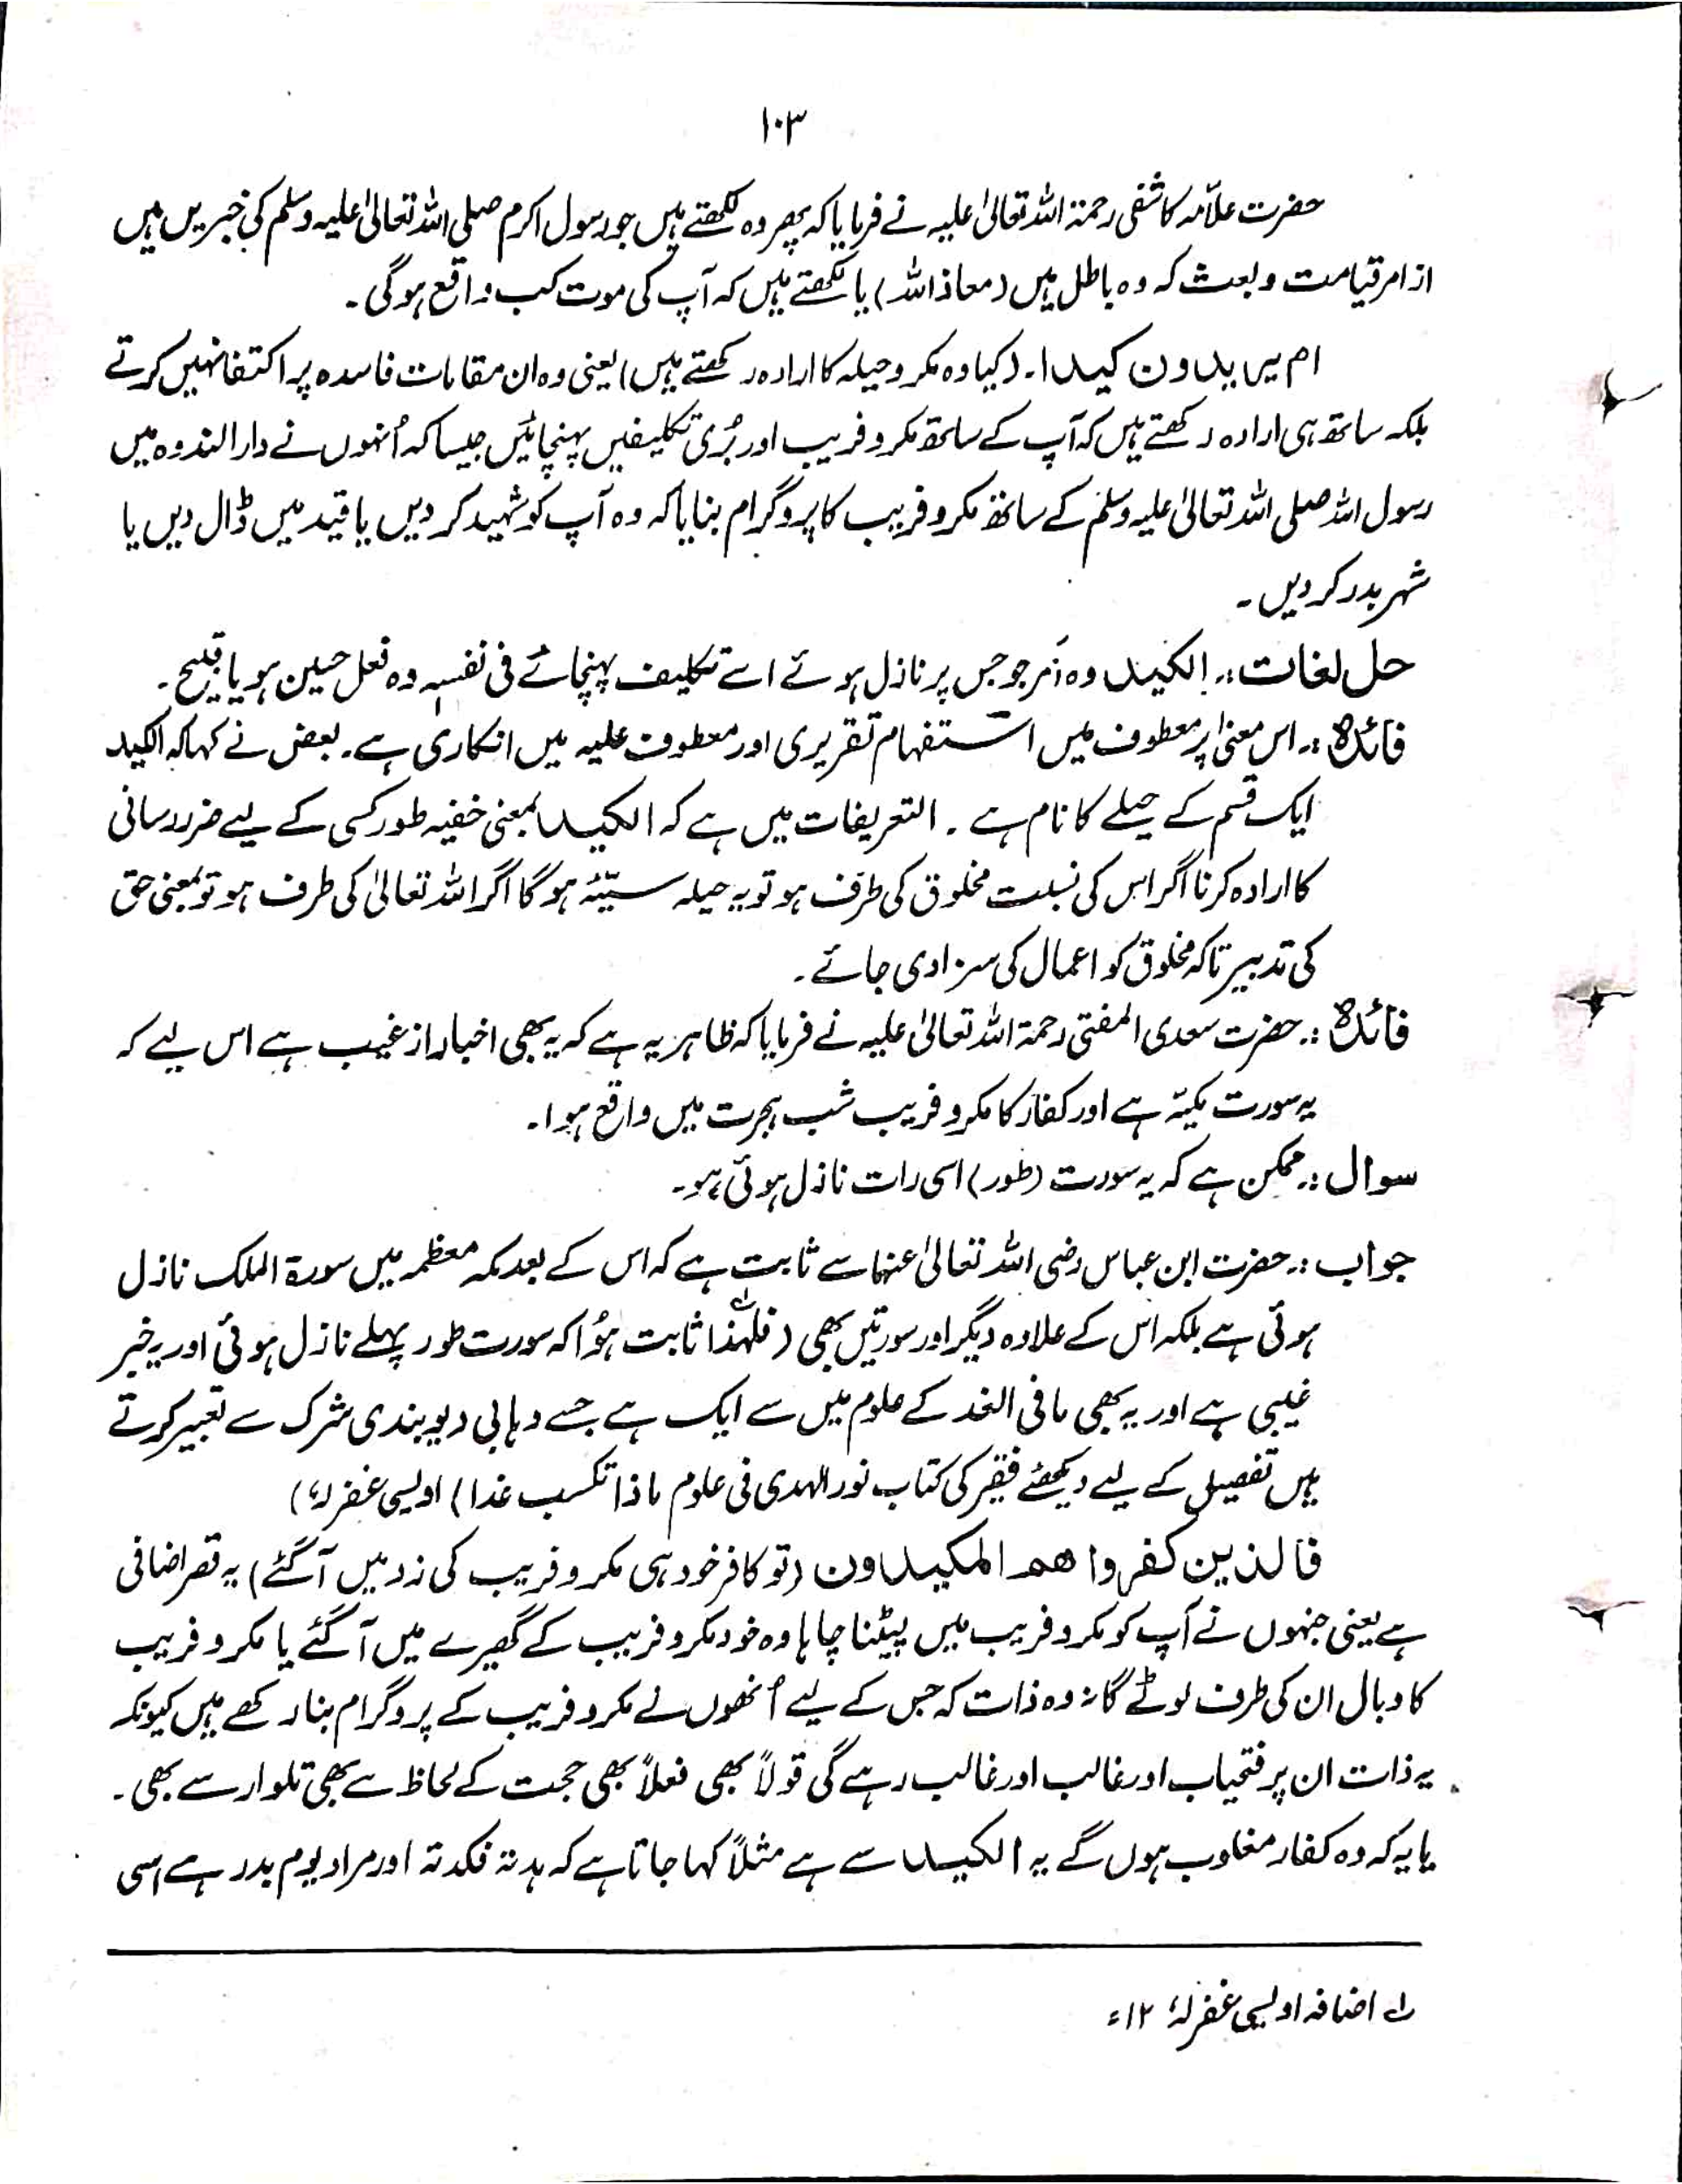 ۱۰۳
حضرت علّامہ کاشفی رحمۃ اللہ تعالیٰ علیہ نے فرمایا کہ پھر وہ لکھتے ہیں جو رسول اکرم صلی اللہ تعالیٰ علیہ وسلم کی خبریں ہیں
از امر قیامت و بعث کہ وہ باطل ہیں (معاذ اللہ) یا لکھتے ہیں کہ آپ کی موت کب واقع ہوگی ۔
ام یریدون کیدا ۔ (کیا وہ مکر و حیلہ کا ارادہ رکھتے ہیں) یعنی وہ ان مقامات فاسدہ پر اکتفا نہیں کرتے
بلکہ ساتھ ہی ارادہ رکھتے ہیں کہ آپ کے ساتھ مکر و فریب اور بُری تکلیفیں پہنچائیں جیسا کہ اُنہوں نے دارالندوہ میں
رسول اللہ صلی اللہ تعالیٰ علیہ وسلم کے ساتھ مکر و فریب کا پروگرام بنایا کہ وہ آپ کو شہید کر دیں یا قید میں ڈال دیں یا
شہر بدر کر دیں ۔
حل لغات :۔ الکید وہ اَمر جو جس پر نازل ہوئے اسے تکلیف پہنچائے فی نفسہٖ وہ فعل حسین ہو یا قبیح ۔
فائدہ :۔ اس معنیٰ پر معطوف میں استفہام تقریری اور معطوف علیہ میں انکاری ہے ۔ بعض نے کہا کہ الکید
ایک قسم کے حیلے کا نام ہے ۔ التعریفات میں ہے کہ الکید بمعنی خفیہ طور کسی کے لیے ضرر رسانی
کا ارادہ کرنا اگر اس کی نسبت مخلوق کی طرف ہو تو یہ حیلہ سیّئہ ہوگا اگر اللہ تعالیٰ کی طرف ہو تو بمعنی حق
کی تدبیر تاکہ مخلوق کو اعمال کی سزا دی جائے ۔
فائدہ :۔ حضرت سعدی المفتی رحمۃ اللہ تعالیٰ علیہ نے فرمایا کہ ظاہر یہ ہے کہ یہ بھی اخبار از غیب ہے اس لیے کہ
یہ سورت مکیّہ ہے اور کفار کا مکر و فریب شب ہجرت میں واقع ہوا ۔
سوال :۔ ممکن ہے کہ یہ سورت (طور) اسی رات نازل ہوئی ہو ۔
جواب :۔ حضرت ابن عباس رضی اللہ تعالیٰ عنہما سے ثابت ہے کہ اس کے بعد مکہ معظمہ میں سورۃ الملک نازل
ہوئی ہے بلکہ اس کے علاوہ دیگر اور سورتیں بھی (فلہٰذا ثابت ہؤا کہ سورت طور پہلے نازل ہوئی اور یہ خبر
غیبی ہے اور یہ بھی مافی الغد کے علوم میں سے ایک ہے جسے وہابی دیوبندی شرک سے تعبیر کرتے
ہیں تفصیل کے لیے دیکھئے فقیر کی کتاب نور الہدی فی علوم ماذا تکسب غدا) اویسی غفرلہٗ)
فالذین کفروا هم المکیدون (تو کافر خود ہی مکر و فریب کی زد میں آگئے) یہ قصر اضافی
ہے یعنی جنہوں نے آپ کو مکر و فریب میں لپیٹنا چاہا وہ خود مکر و فریب کے گھیرے میں آگئے یا مکر و فریب
کا وبال ان کی طرف لوٹے گا نہ وہ ذات کہ جس کے لیے اُنھوں نے مکر و فریب کے پروگرام بنا رکھے ہیں کیونکہ
یہ ذات ان پر فتحیاب اور غالب اور غالب رہے گی قولاً بھی فعلاً بھی حجت کے لحاظ سے بھی تلوار سے بھی ۔
یا یہ کہ وہ کفار مغلوب ہوں گے یہ الکید سے ہے مثلاً کہا جاتا ہے کہ فکدتہ اور مراد یوم بدر ہے اسی
لہ اضافہ اویسی غفرلہٗ ۱۲ء